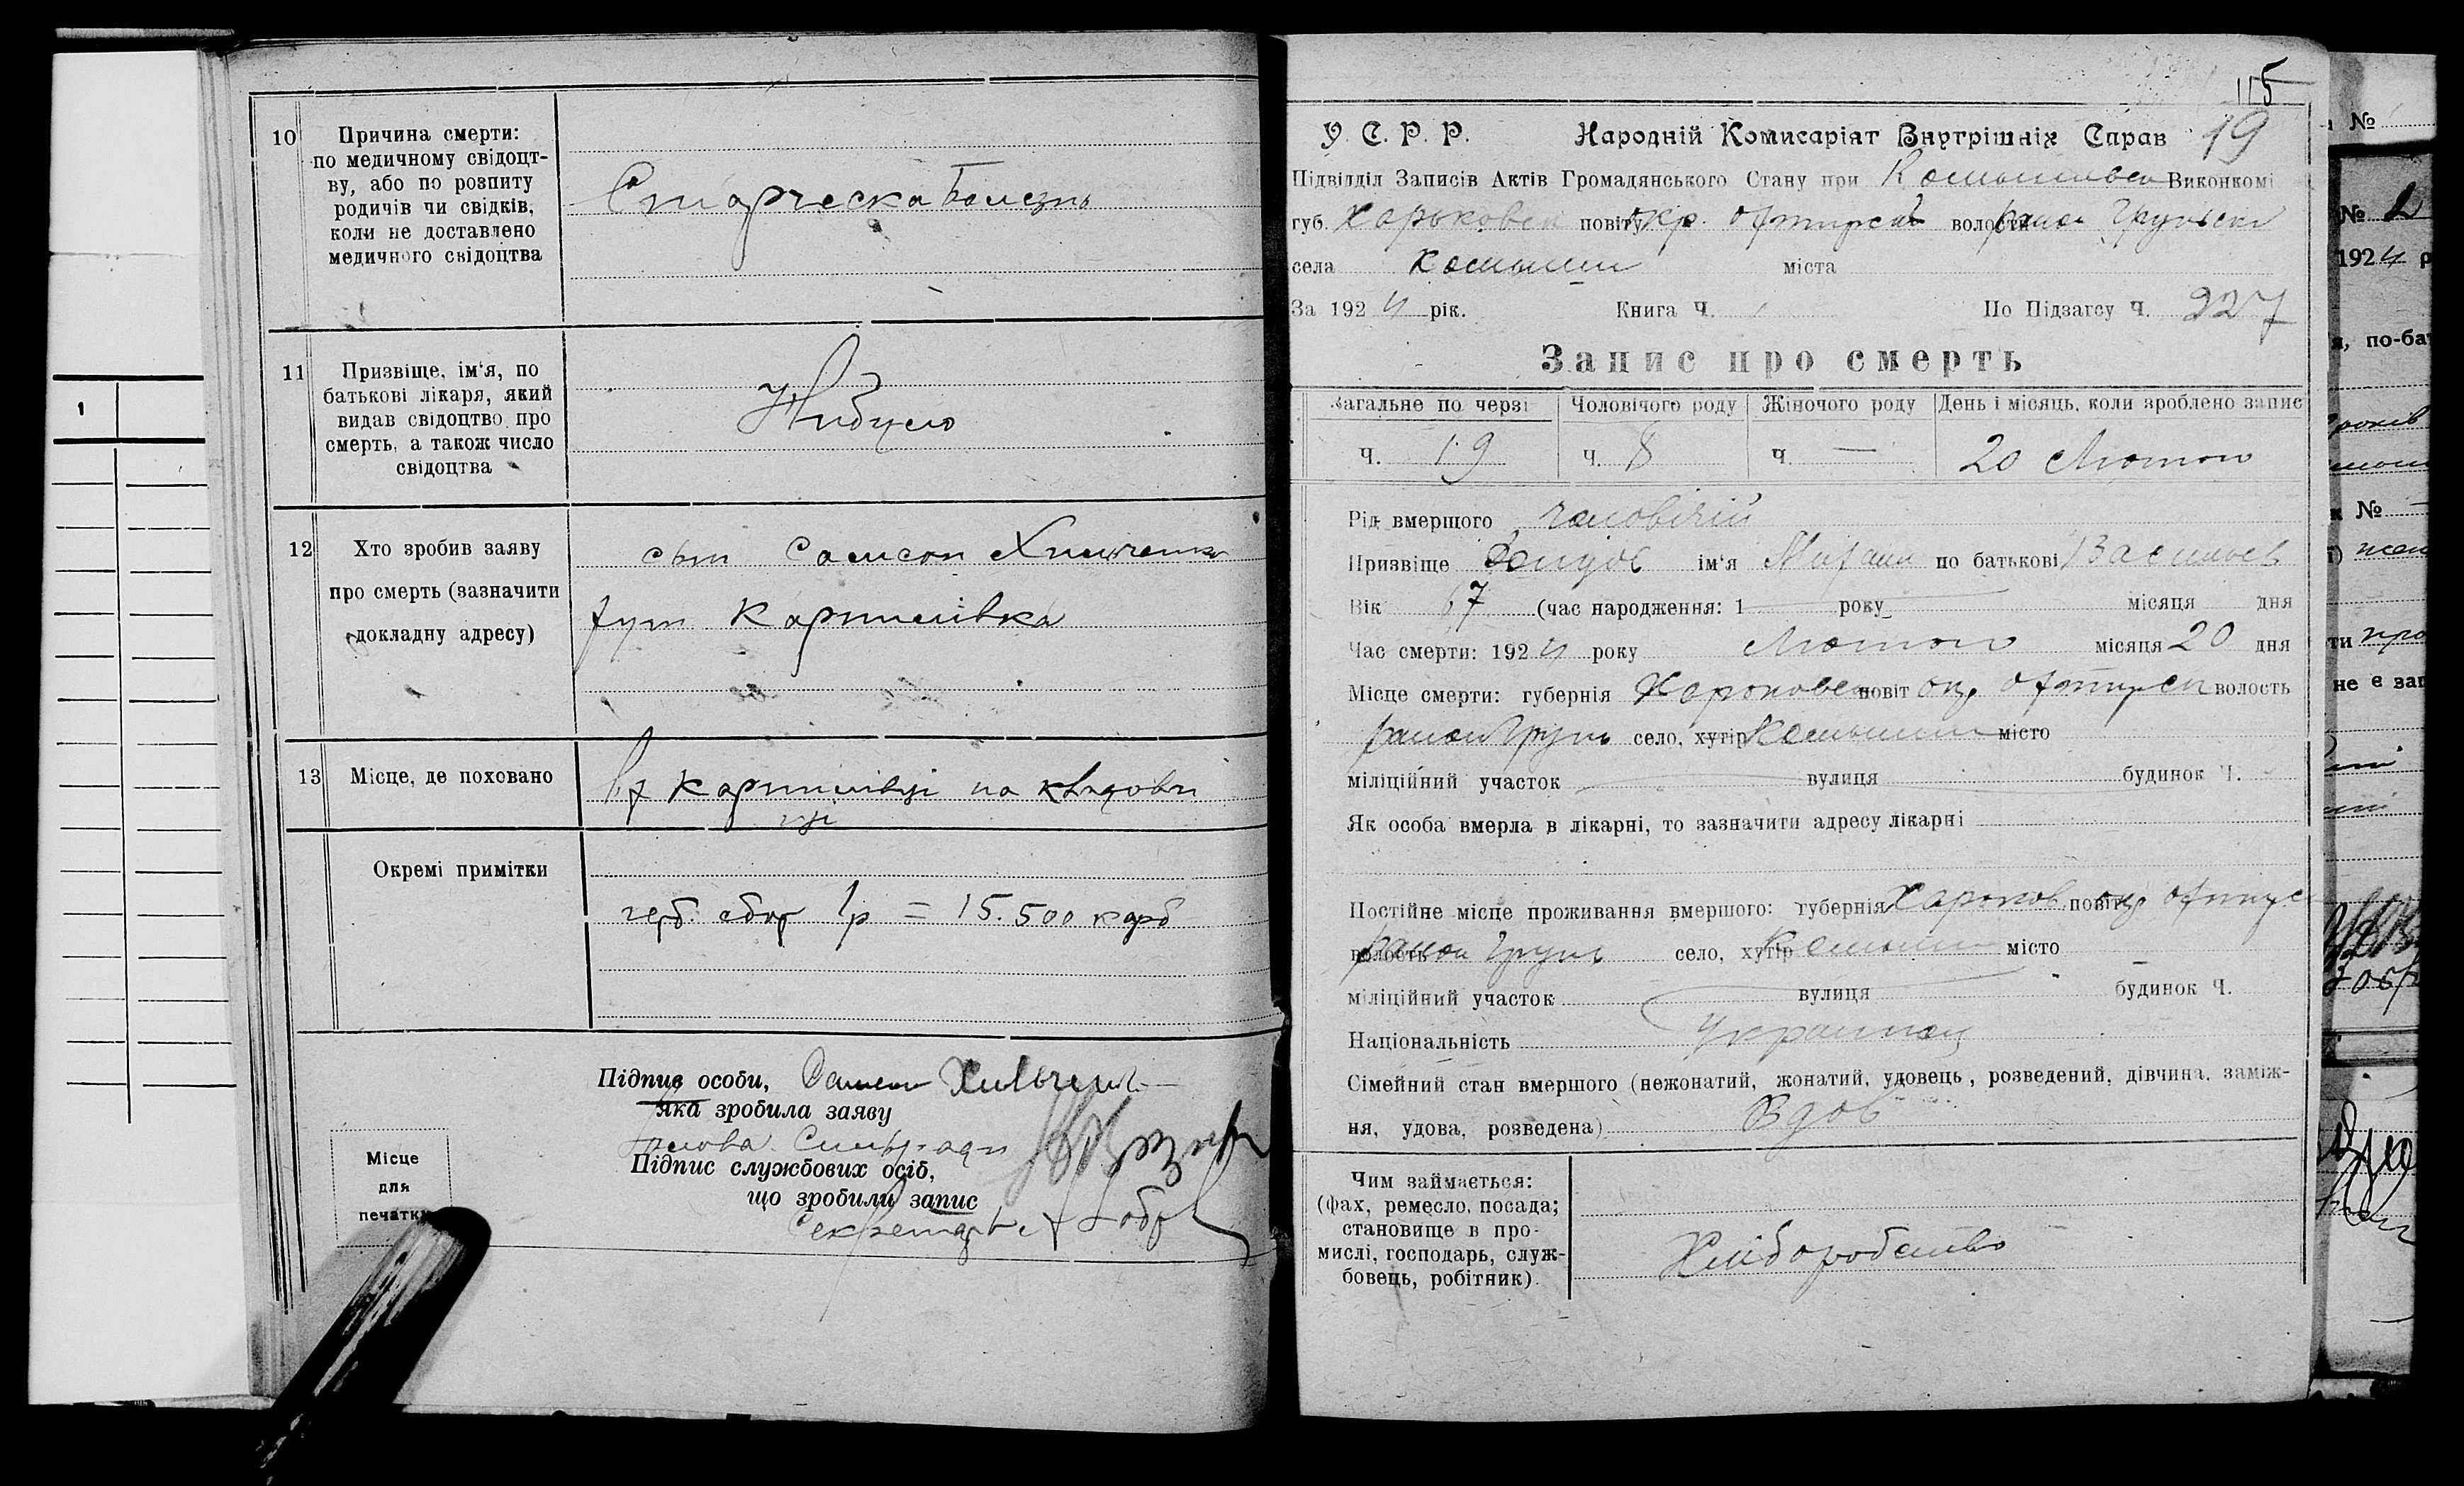 10 Причина смерти:
по медичному свідоцт-
ву, або по розпиту
родичів чи свідків,
коли не доставлено
медичного свідоцтва
Старческа болезнь
11 Призвіще, ім'я, по
батькові лікаря, який
видав свідоцтво про
смерть, а також число
свідоцтва
12 Хто зробив заяву
про смерть (зазначити
докладну адресу)
сын Самсон Хильченко
хут Картилівка
13 Місце, де поховано
в х Картилівці на кладови
щі
Окремі примітки
герб. сбор 1р = 15.500 карб
Підпис особи,
яка зробила заяву
Голова
Підпис службових осіб,
що зробили запис
Секретарь
Місце
для
печатки
1
115
У. С. Р. Р. Народній Комисаріят Внутрішніх Справ 19
Підвідділ Записів Актів Громадянського Стану при Комышанск Виконкомі
губ. Харьковск повіту окр. Охтирск волости район Грунськ
села Комыши міста
За 1924 рік. Книга Ч. По Підзагсу Ч. 327
Запис про смерть
Загальне по черзі Чоловічого роду Жіночого роду День і місяць, коли зроблено запис
Ч. 19 Ч. 8 Ч. — 20 Лютого
Рід вмершого чоловічій
Призвіще ім'я по батькові Васильев
Вік 67 (час народження: 1 року місяця дня
Час смерти: 1924 року Лютого місяця 20 дня
Місце смерти: губернія Харьковск повіт окр Охтирск волость
район Грунь село, хутір Комыши місто
міліційний участок вулиця будинок Ч.
Як особа вмерла в лікарні, то зазначити адресу лікарні
Постійне місце проживання вмершого: губернія Харьков повіт окр Охтирс
волость район Грунь село, хутір Комыши місто
міліційний участок вулиця будинок Ч.
Національність Украинец
Сімейний стан вмершого (нежонатий, жонатий, удовець, розведений, дівчина, заміж-
ня, удова, розведена) Вдов
Чим займається:
(фах, ремесло, посада;
становище в про-
мислі, господарь, служ-
бовець, робітник).
Хліборобство
№
№ 2
1924 р
по-ба
№